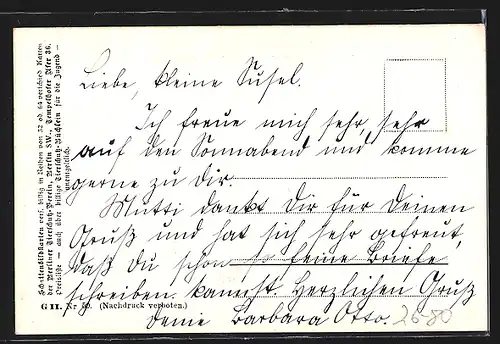 Schattenbildkarten versch. billig in Reihen von 32 od. 64 verschied. Karten
der Berliner Tierschutz-Verein, Berlin SW., Tempelhofer Ufer 36.
Preisliste – auch über billige Tierschutz-Büchlein für die Jugend –
unentgeltlich.
Liebe, kleine Susel.
Ich freue mich sehr, sehr
auf den Sonnabend und komme
gerne zu Dir.
Mutti dankt Dir für Deinen
Gruß und hat sich sehr gefreut,
daß du schon so feine Briefe
schreiben kannst. Herzlichen Gruß
Deine Barbara Otto.
26-80
G II. Nr 50. (Nachdruck verboten.)